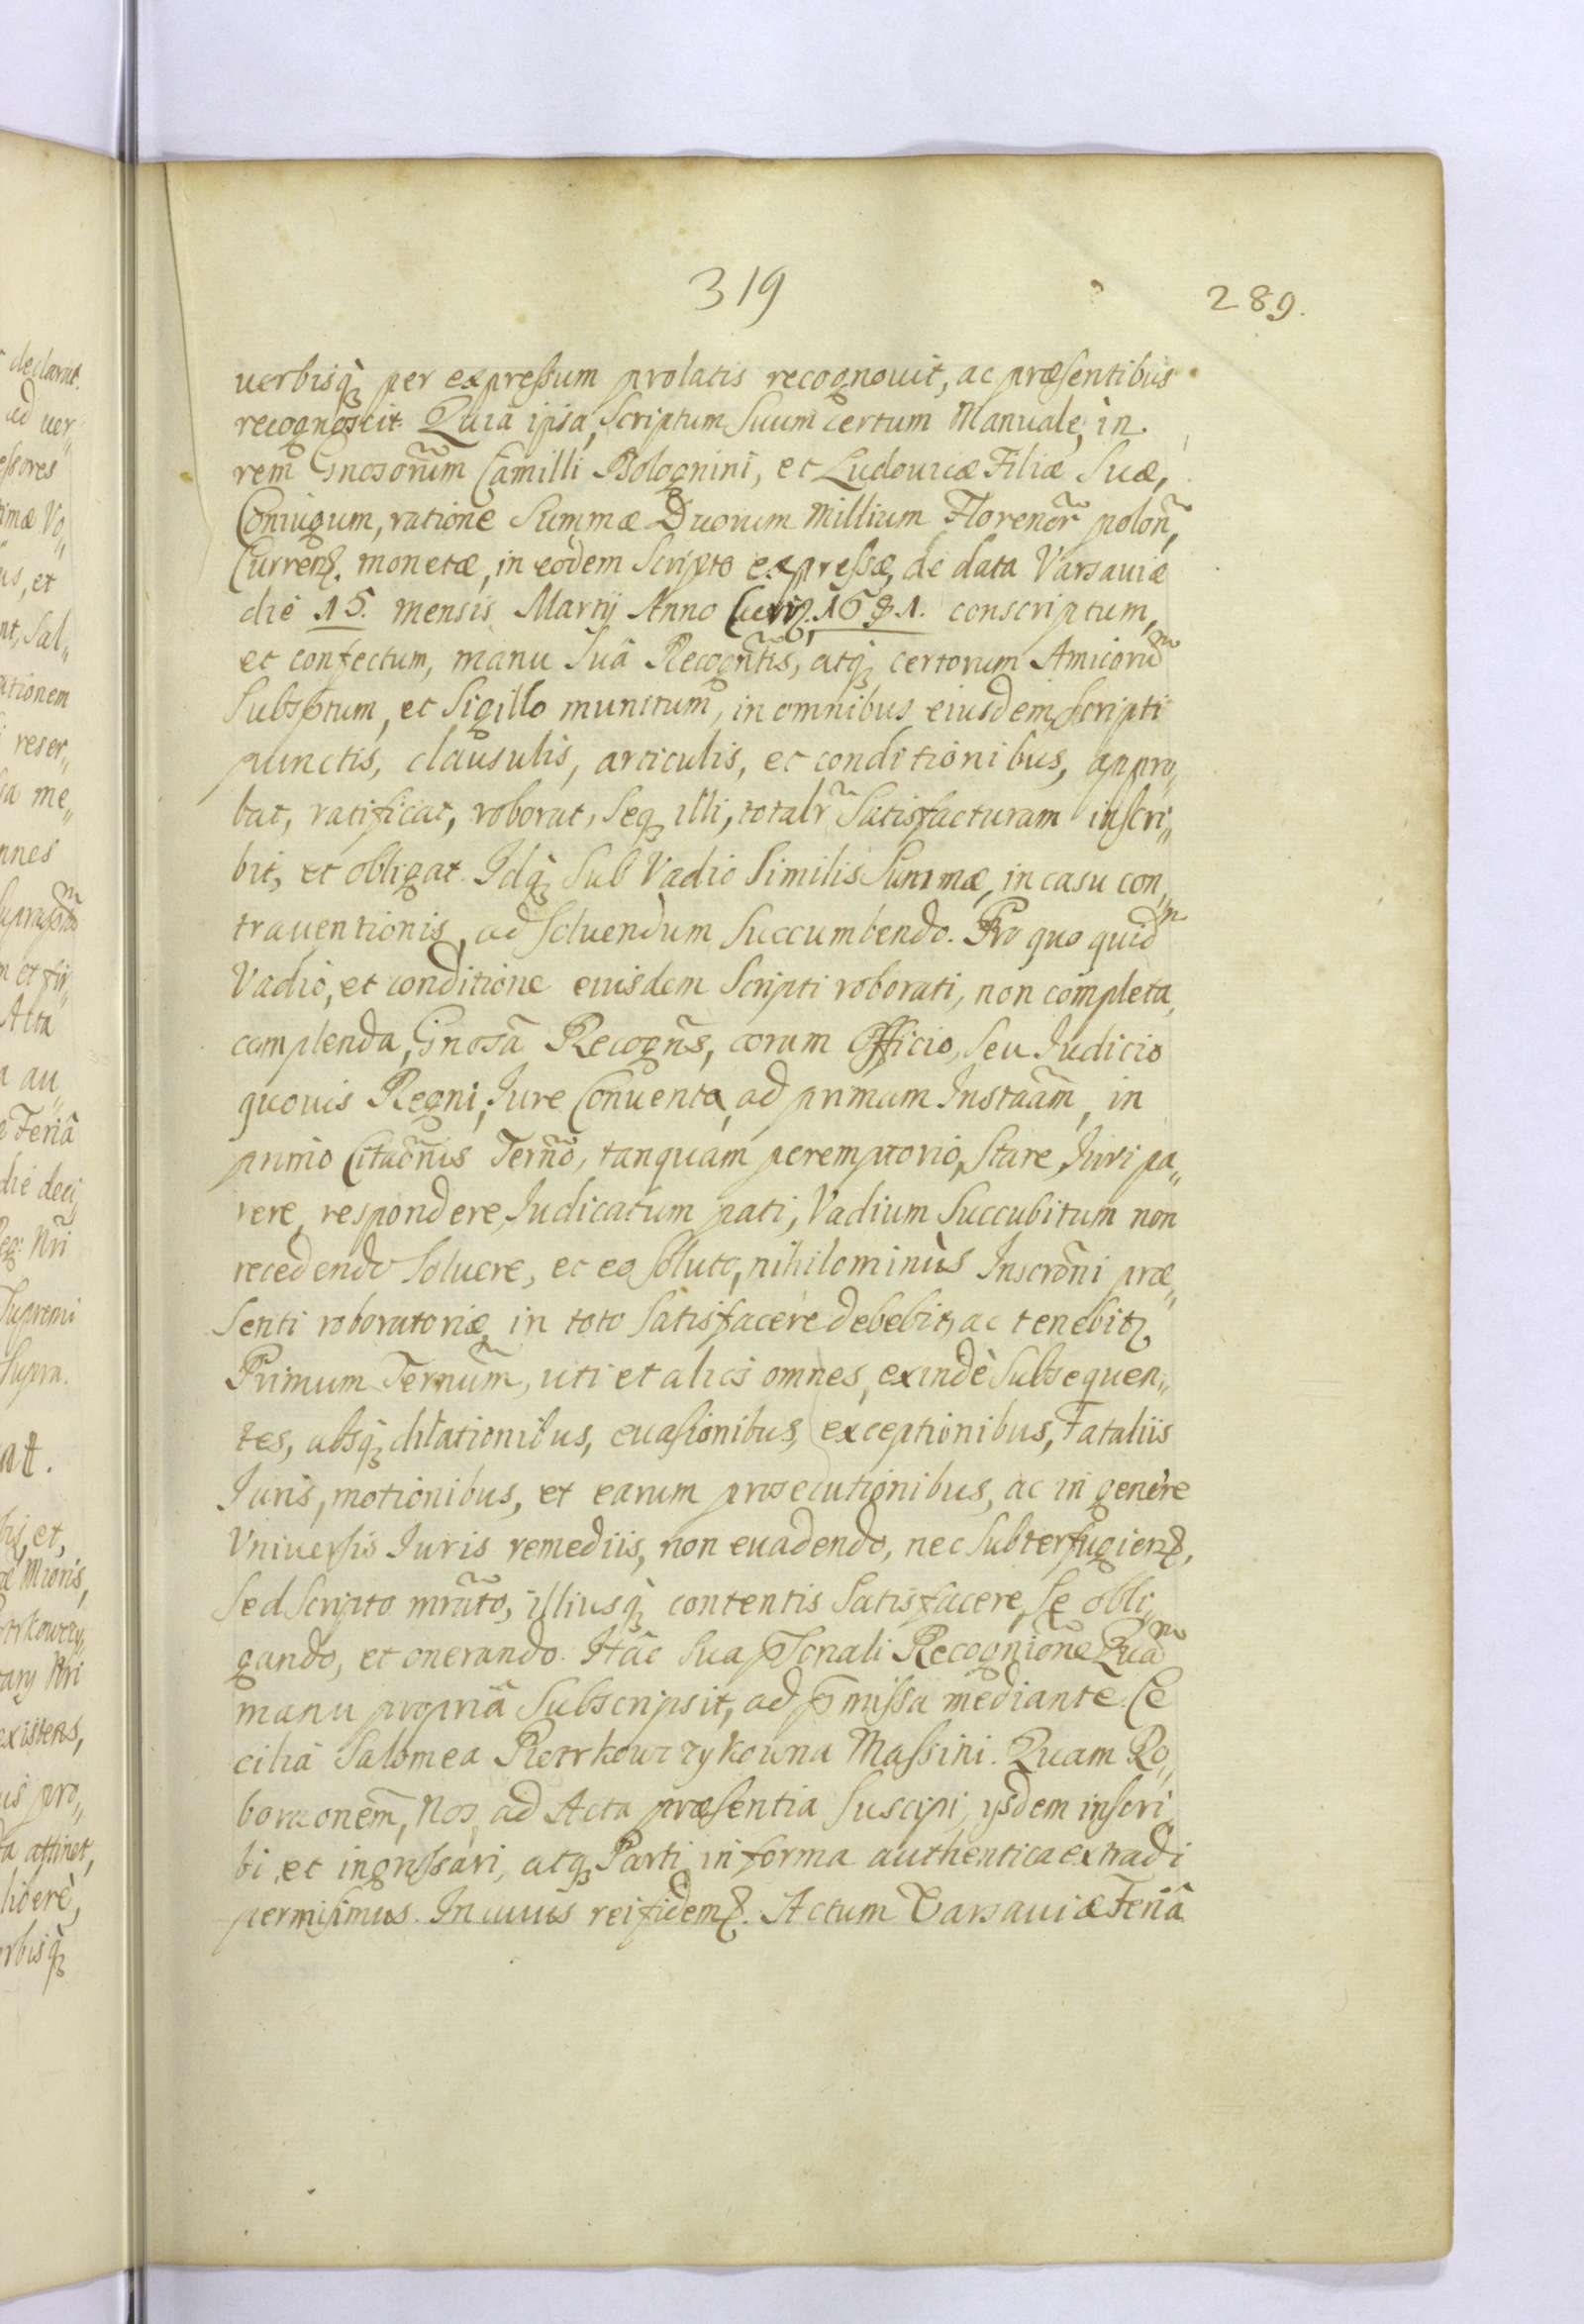 319
289.
uerbisq̀ per expressum prolatis recognouit, ac præsentibus
recognoscit. Quia ipsa, Scriptum Suum certum Manuale, in
rem Gnosorum Camilli Bolognini, et Ludouicæ Filiæ Suæ,
Coniugum, ratione Summæ Duorum Millium Florenor̃ polon̄,
Curren. monetæ, in eodem Scripto expressæ, de data Varsauiæ
die 15. mensis Martij Anno 1681. conscriptum,
et confectum, manu Suâ Recogñtis, atq̀ certorum Amicorũ
Subsptum, et Sigillo munitum, in omnibus eiusdem Scripti
punctis, clausulis, articulis, et conditionibus, appro„
bat, ratificat, roborat, Seq̀ illi, totalr̃ Satisfacturam inscri„
bit, et obligat. Idq̀ Sub Vadio Similis Summæ, in casu con„
trauentionis, ad Soluendum Succumbendo. Pro quo quid̃
Vadio, et conditione eiusdem Scripti roborati, non completa,
complenda, Gnosa Recogñs, coram Officio, Seu Iudicio
quouis Regni, Iure Conuenta, ad primam Instãam, in
primo Citaõnis Terño, tanquàm peremptorio, Stare, Iuri pa„
rere, respondere, Iudicatum pati, Vadium Succubitum non
recedendo Soluere, et eo Soluto, nihilominùs Inscrõni præ„
senti roboratoriæ in toto Satisfacere debebit, ac tenebit.
Primum Terñum, uti et alios omnes, exindè Subsequen„
tes, absq̀ dilationibus, euasionibus, exceptionibus, Fataliis
Iuris, motionibus, et earum prosecutionibus, ac in genère
Vniuersis Iuris remediis, non euadendo, nec Subterfugien,
Sed Scripto mrãto, illiusq̀ contentis Satisfacere, Se obli„
gando, et onerando. Hâc Sua p̄sonali Recognione Quã
manu propriâ Subscripsit, ad p̄missa mediante. Ce
cilia Salomea Pietrkowczykowna Massini. Quam Ro„
boraonem̃, Nos, ad Acta præsentia Suscipi, ijsdem inscri„
bi, et ingrossari, atq̀ Parti in forma authentica extradi
permisimus. In cuius rei fidem. Actum Varsauiæ Feriâ